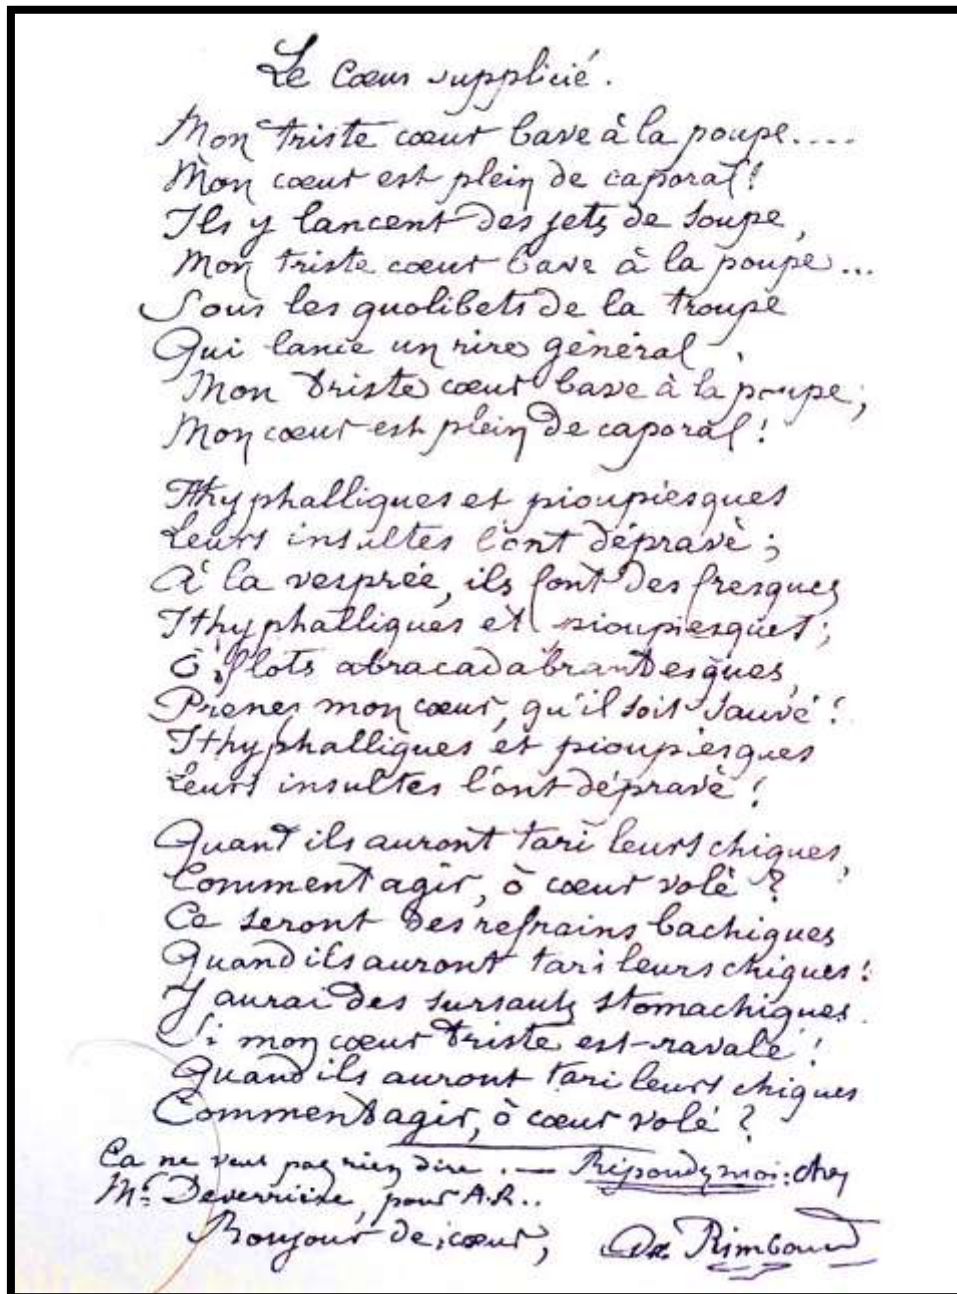 Le Cœur supplicié.
Mon triste cœur bave à la poupe....
Mon cœur est plein de caporal!
Ils y lancent des jets de soupe,
Mon triste cœur bave à la poupe...
Sous les quolibets de la troupe
Qui lance un rire général,
Mon triste cœur bave à la poupe;
Mon cœur est plein de caporal!
Ithyphalliques et pioupiesques
Leurs insultes l'ont dépravé;
À la vesprée, ils font des fresques
Ithyphalliques et pioupiesques;
Ô flots abracadabrantesques,
Prenez mon cœur, qu'il soit sauvé!
Ithyphalliques et pioupiesques
Leurs insultes l'ont dépravé!
Quand ils auront tari leurs chiques,
Comment agir, ô cœur volé?
Ce seront des refrains bachiques
Quand ils auront tari leurs chiques!
J'aurai des sursauts stomachiques
Si mon cœur triste est ravalé!
Quand ils auront tari leurs chiques
Comment agir, ô cœur volé?
Ça ne veut pas rien dire. — Répondez-moi: chez
Mr Deverrière, pour A.R..
Bonjour de cœur, Ar. Rimbaud